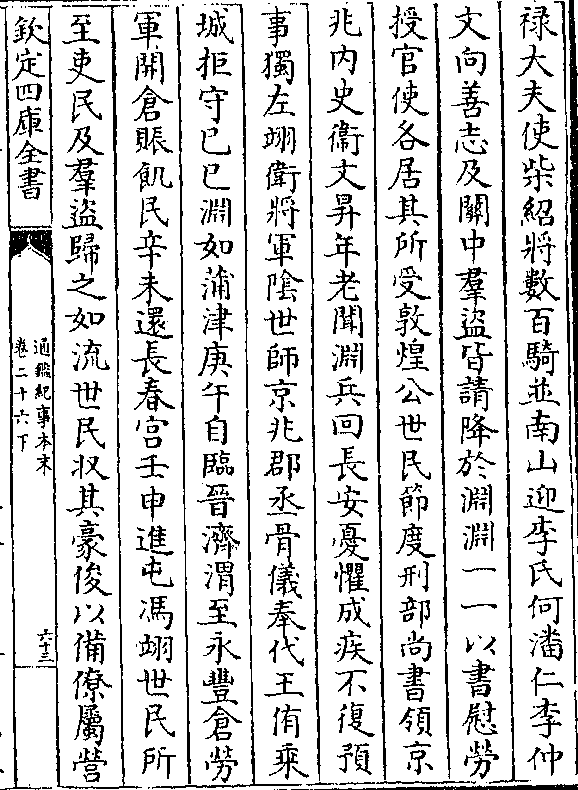 祿大夫使柴紹將數百騎並南山迎李氏何潘仁李仲
文向善志及關中羣盜皆請降於淵淵一一以書慰勞
授官使各居其所受敦煌公世民節度刑部尚書領京
兆内史衞文昇年老聞淵兵向長安憂懼成疾不復預
事獨左翊衛將軍陰世師京兆郡丞骨儀奉代王侑乘
城拒守己巳淵如蒲津庚午自臨晉濟渭至永豐倉勞
軍開倉賑飢民辛未還長春宫壬申進屯馮翊世民所
至吏民及羣盜歸之如流世民収其豪俊以備僚屬營
欽定四庫全書
通鑑紀事本末
卷二十六下
六十三